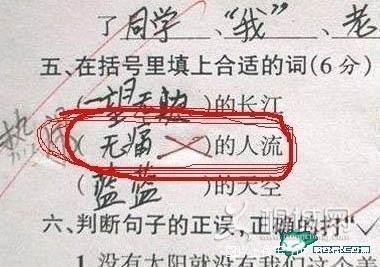 了同学、“我”、老
五、在括号里填上合适的词(6分)
(一望无
)的长江
(无痛)的人流
(蓝蓝)的天空
六、判断句子的正误,正确的打“✓
1.没有太阳就没有我们这个美